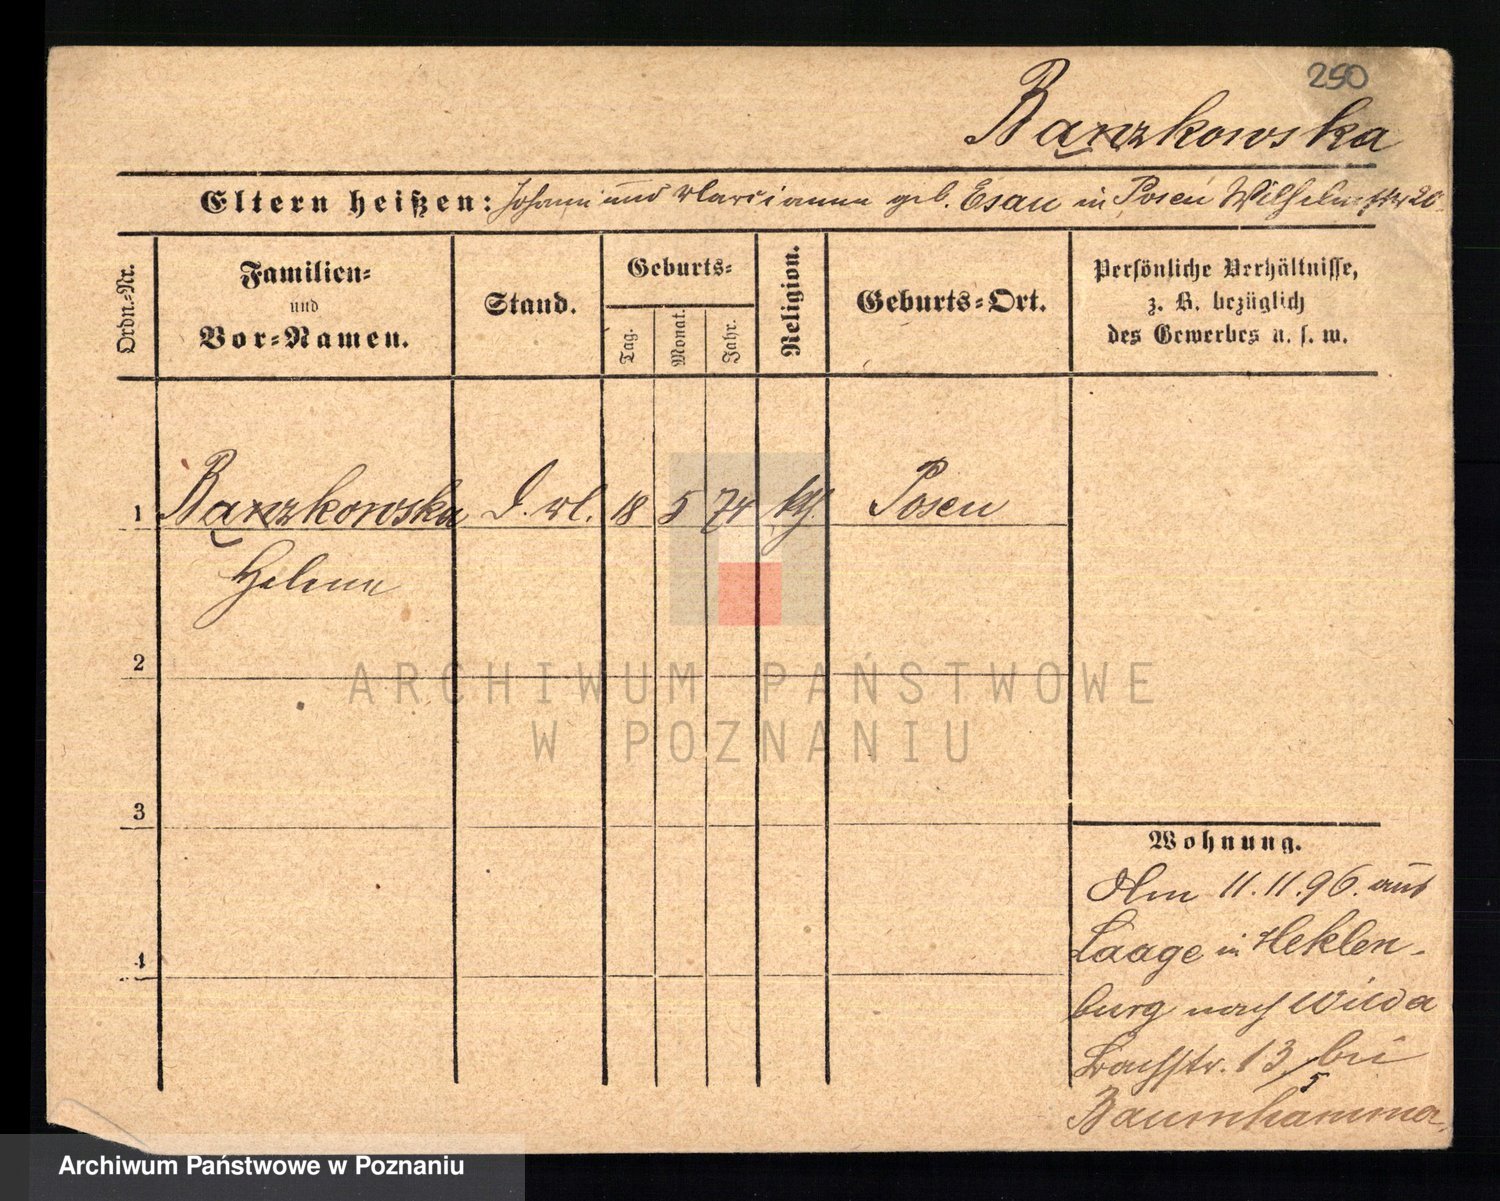 250
Banzkowska
Eltern heißen: Johann und Marcianna geb. Esau in Posen Wilhelmstr 20.
Ordn.-Nr.
Familien-
und
Vor-Namen.
Stand.
Geburts-
Tag.
Monat.
Jahr.
Religion.
Geburts-Ort.
Persönliche Verhältnisse,
z. B. bezüglich
des Gewerbes u. s. w.
1 Banzkowska D. M. 18 5 74 kth. Posen
Helene
2
3
4
Wohnung.
Am 11.11.96. aus
Laage in Meklen-
burg nach Wilda
Bachstr. 13/5 bei
Baumhammer
ARCHIWUM PAŃSTWOWE
W POZNANIU
Archiwum Państwowe w Poznaniu